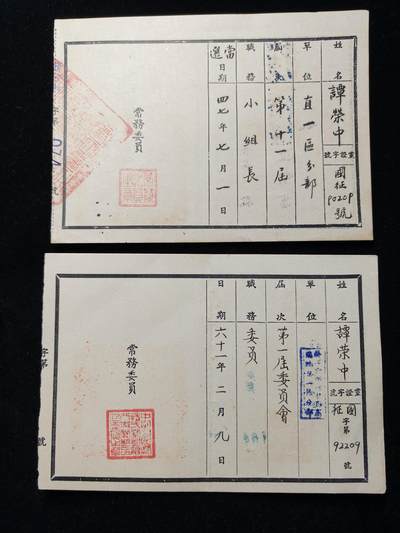 姓名
譚榮中
黨證字號
國征
90209
號
單位
直一區分部
屆次
第十一屆
職務
小組長
當選
日期
四七年七月一日
常務委員
字第
號
姓名
譚榮中
黨證字號
國征
字第
92209
號
單位
屆次
第一屆委員會
職務
委員
日期
六十一年二月九日
常務委員
字第
號